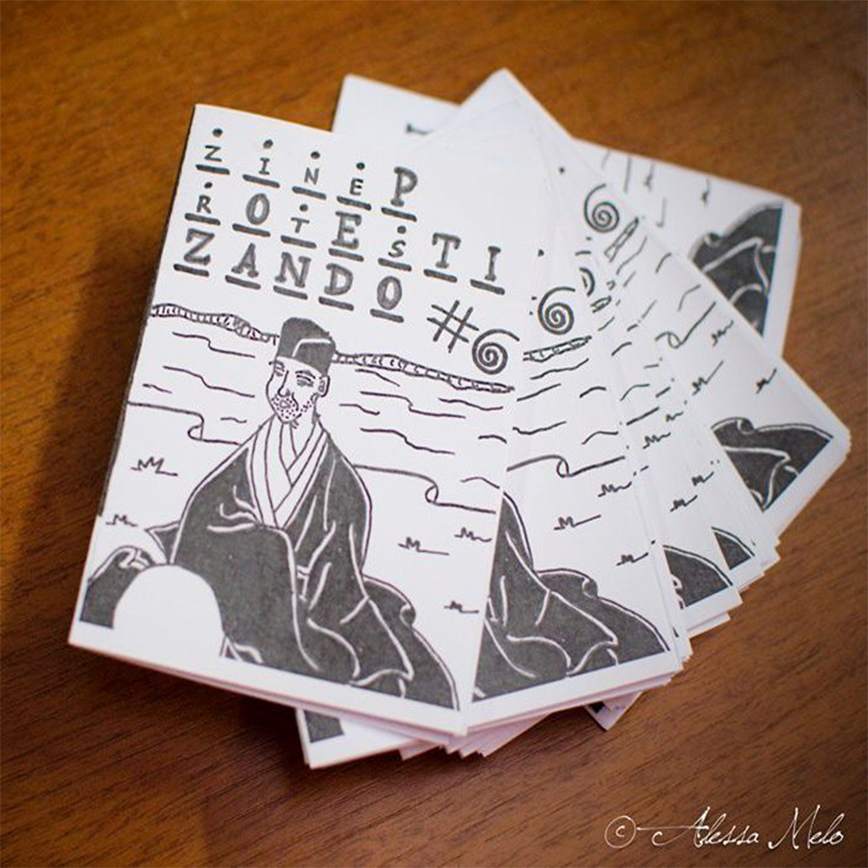 ZINE P
ROTESTI
ZANDO #6
6
6
© Alessa Melo